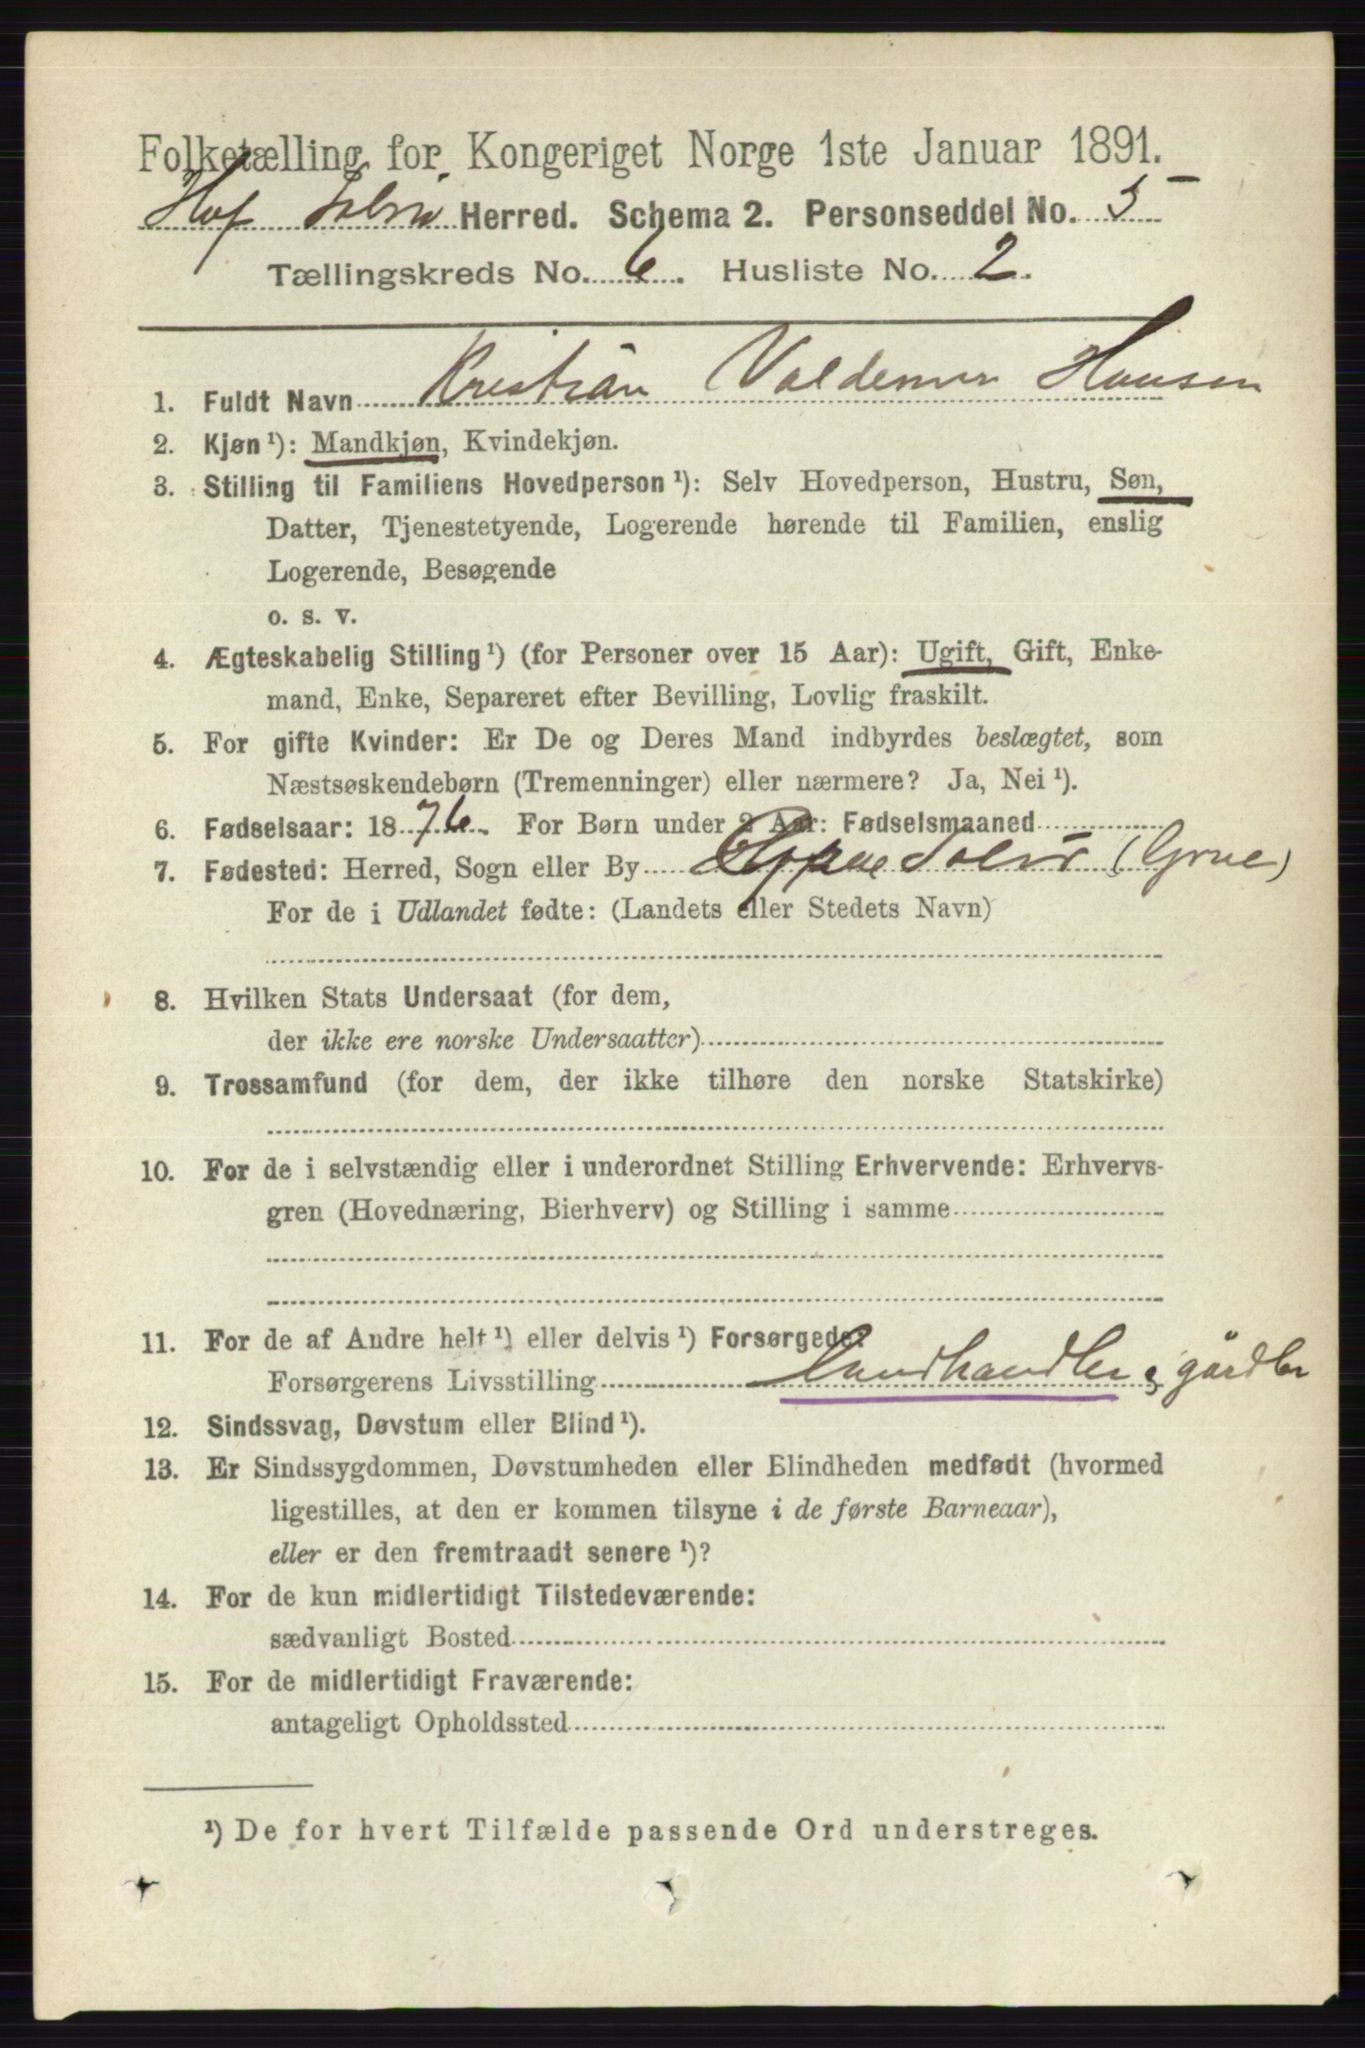 Folketælling for Kongeriget Norge 1ste Januar 1891.
Hof Solør Herred. Schema 2. Personseddel No. 5
Tællingskreds No. 6. Husliste No. 2.
1. Fuldt Navn Kristian Valdemar Hansen
2. Kjøn ¹): Mandkjøn, Kvindekjøn.
3. Stilling til Familiens Hovedperson ¹): Selv Hovedperson, Hustru, Søn,
Datter, Tjenestetyende, Logerende hørende til Familien, enslig
Logerende, Besøgende
o. s. v.
4. Ægteskabelig Stilling ¹) (for Personer over 15 Aar): Ugift, Gift, Enke-
mand, Enke, Separeret efter Bevilling, Lovlig fraskilt.
5. For gifte Kvinder: Er De og Deres Mand indbyrdes beslægtet, som
Næstsøskendebørn (Tremenninger) eller nærmere? Ja, Nei ¹).
6. Fødselsaar: 1876. For Børn under 2 Aar: Fødselsmaaned
7. Fødested: Herred, Sogn eller By Solør (Grue)
For de i Udlandet fødte: (Landets eller Stedets Navn)
8. Hvilken Stats Undersaat (for dem,
der ikke ere norske Undersaatter)
9. Trossamfund (for dem, der ikke tilhøre den norske Statskirke)
10. For de i selvstændig eller i underordnet Stilling Erhvervende: Erhvervs-
gren (Hovednæring, Bierhverv) og Stilling i samme
11. For de af Andre helt ¹) eller delvis ¹) Forsørgede:
Forsørgerens Livsstilling Landhandler & gårdbr
12. Sindssvag, Døvstum eller Blind ¹).
13. Er Sindssygdommen, Døvstumheden eller Blindheden medfødt (hvormed
ligestilles, at den er kommen tilsyne i de første Barneaar),
eller er den fremtraadt senere ¹)?
14. For de kun midlertidigt Tilstedeværende:
sædvanligt Bosted
15. For de midlertidigt Fraværende:
antageligt Opholdssted
¹) De for hvert Tilfælde passende Ord understreges.